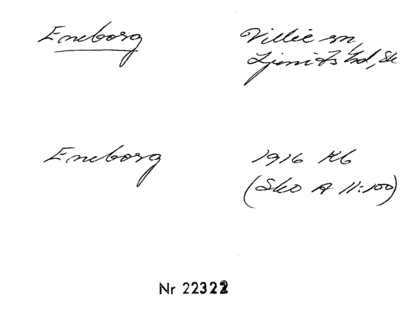 Eneborg
Villie sn,
Ljunits hd, Sk
Eneborg
1916 Kb
(Sko A 11:100)
Nr 22322